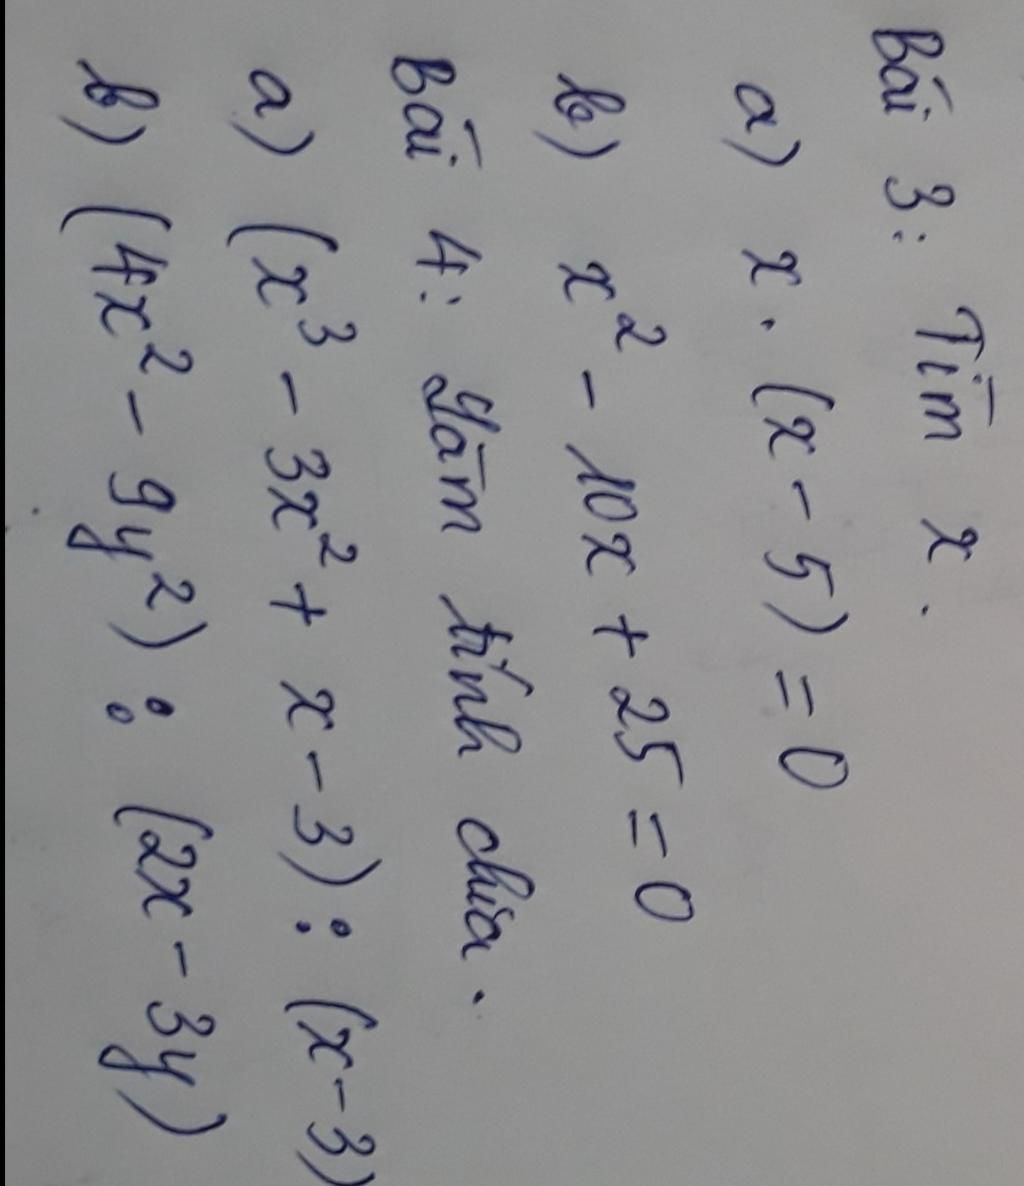 Bài 3: Tìm x.
a) x. (x - 5) = 0
b) x² - 10x + 25 = 0
Bài 4: Làm tính chia.
a) (x³ - 3x² + x - 3) : (x - 3)
b) (4x² - 9y²) : (2x - 3y)